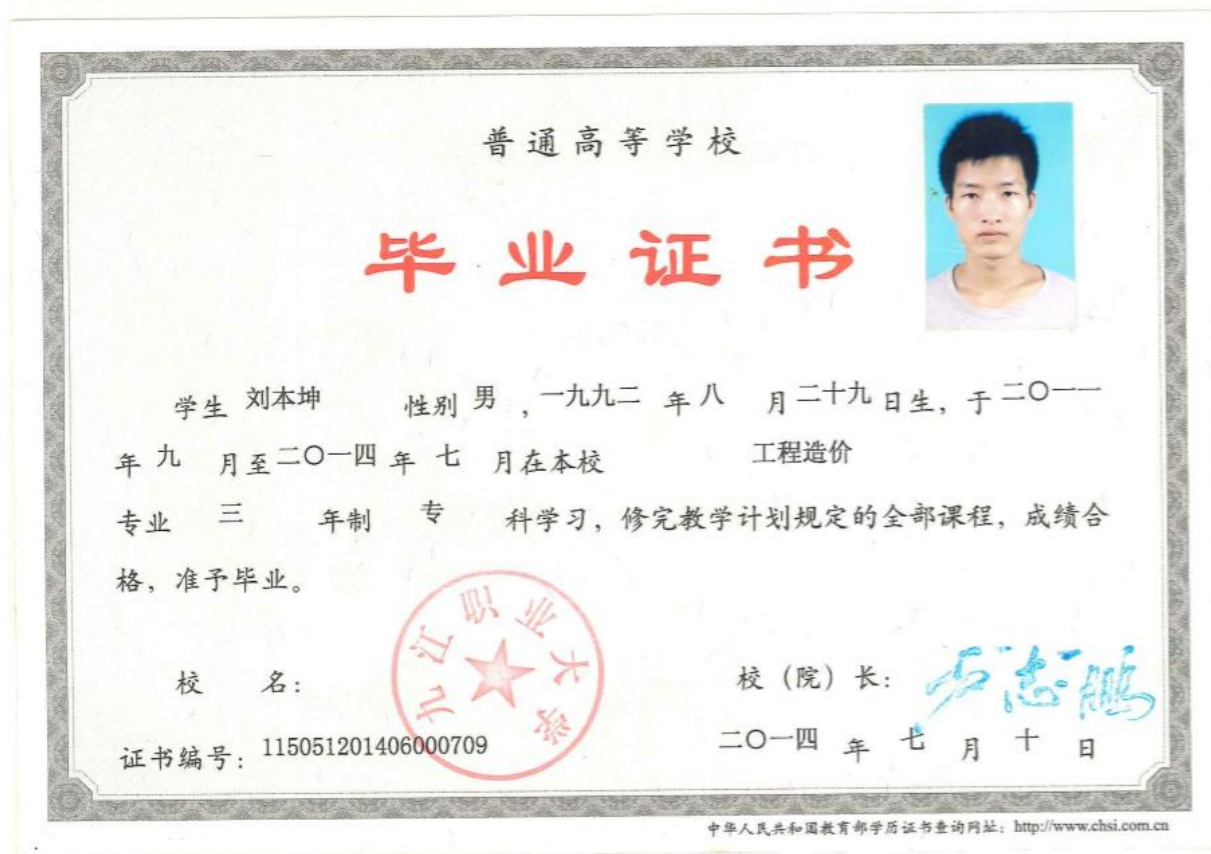 普通高等学校
毕业证书
学生 刘本坤 性别 男 ，一九九二 年 八 月 二十九 日生，于 二〇一一
年 九 月至 二〇一四 年 七 月在本校 工程造价
专业 三 年制 专 科学习，修完教学计划规定的全部课程，成绩合
格，准予毕业。
九江职业大学
校 名： 校（院）长：
证书编号：115051201406000709 二〇一四 年 七 月 十 日
中华人民共和国教育部学历证书查询网址：http://www.chsi.com.cn